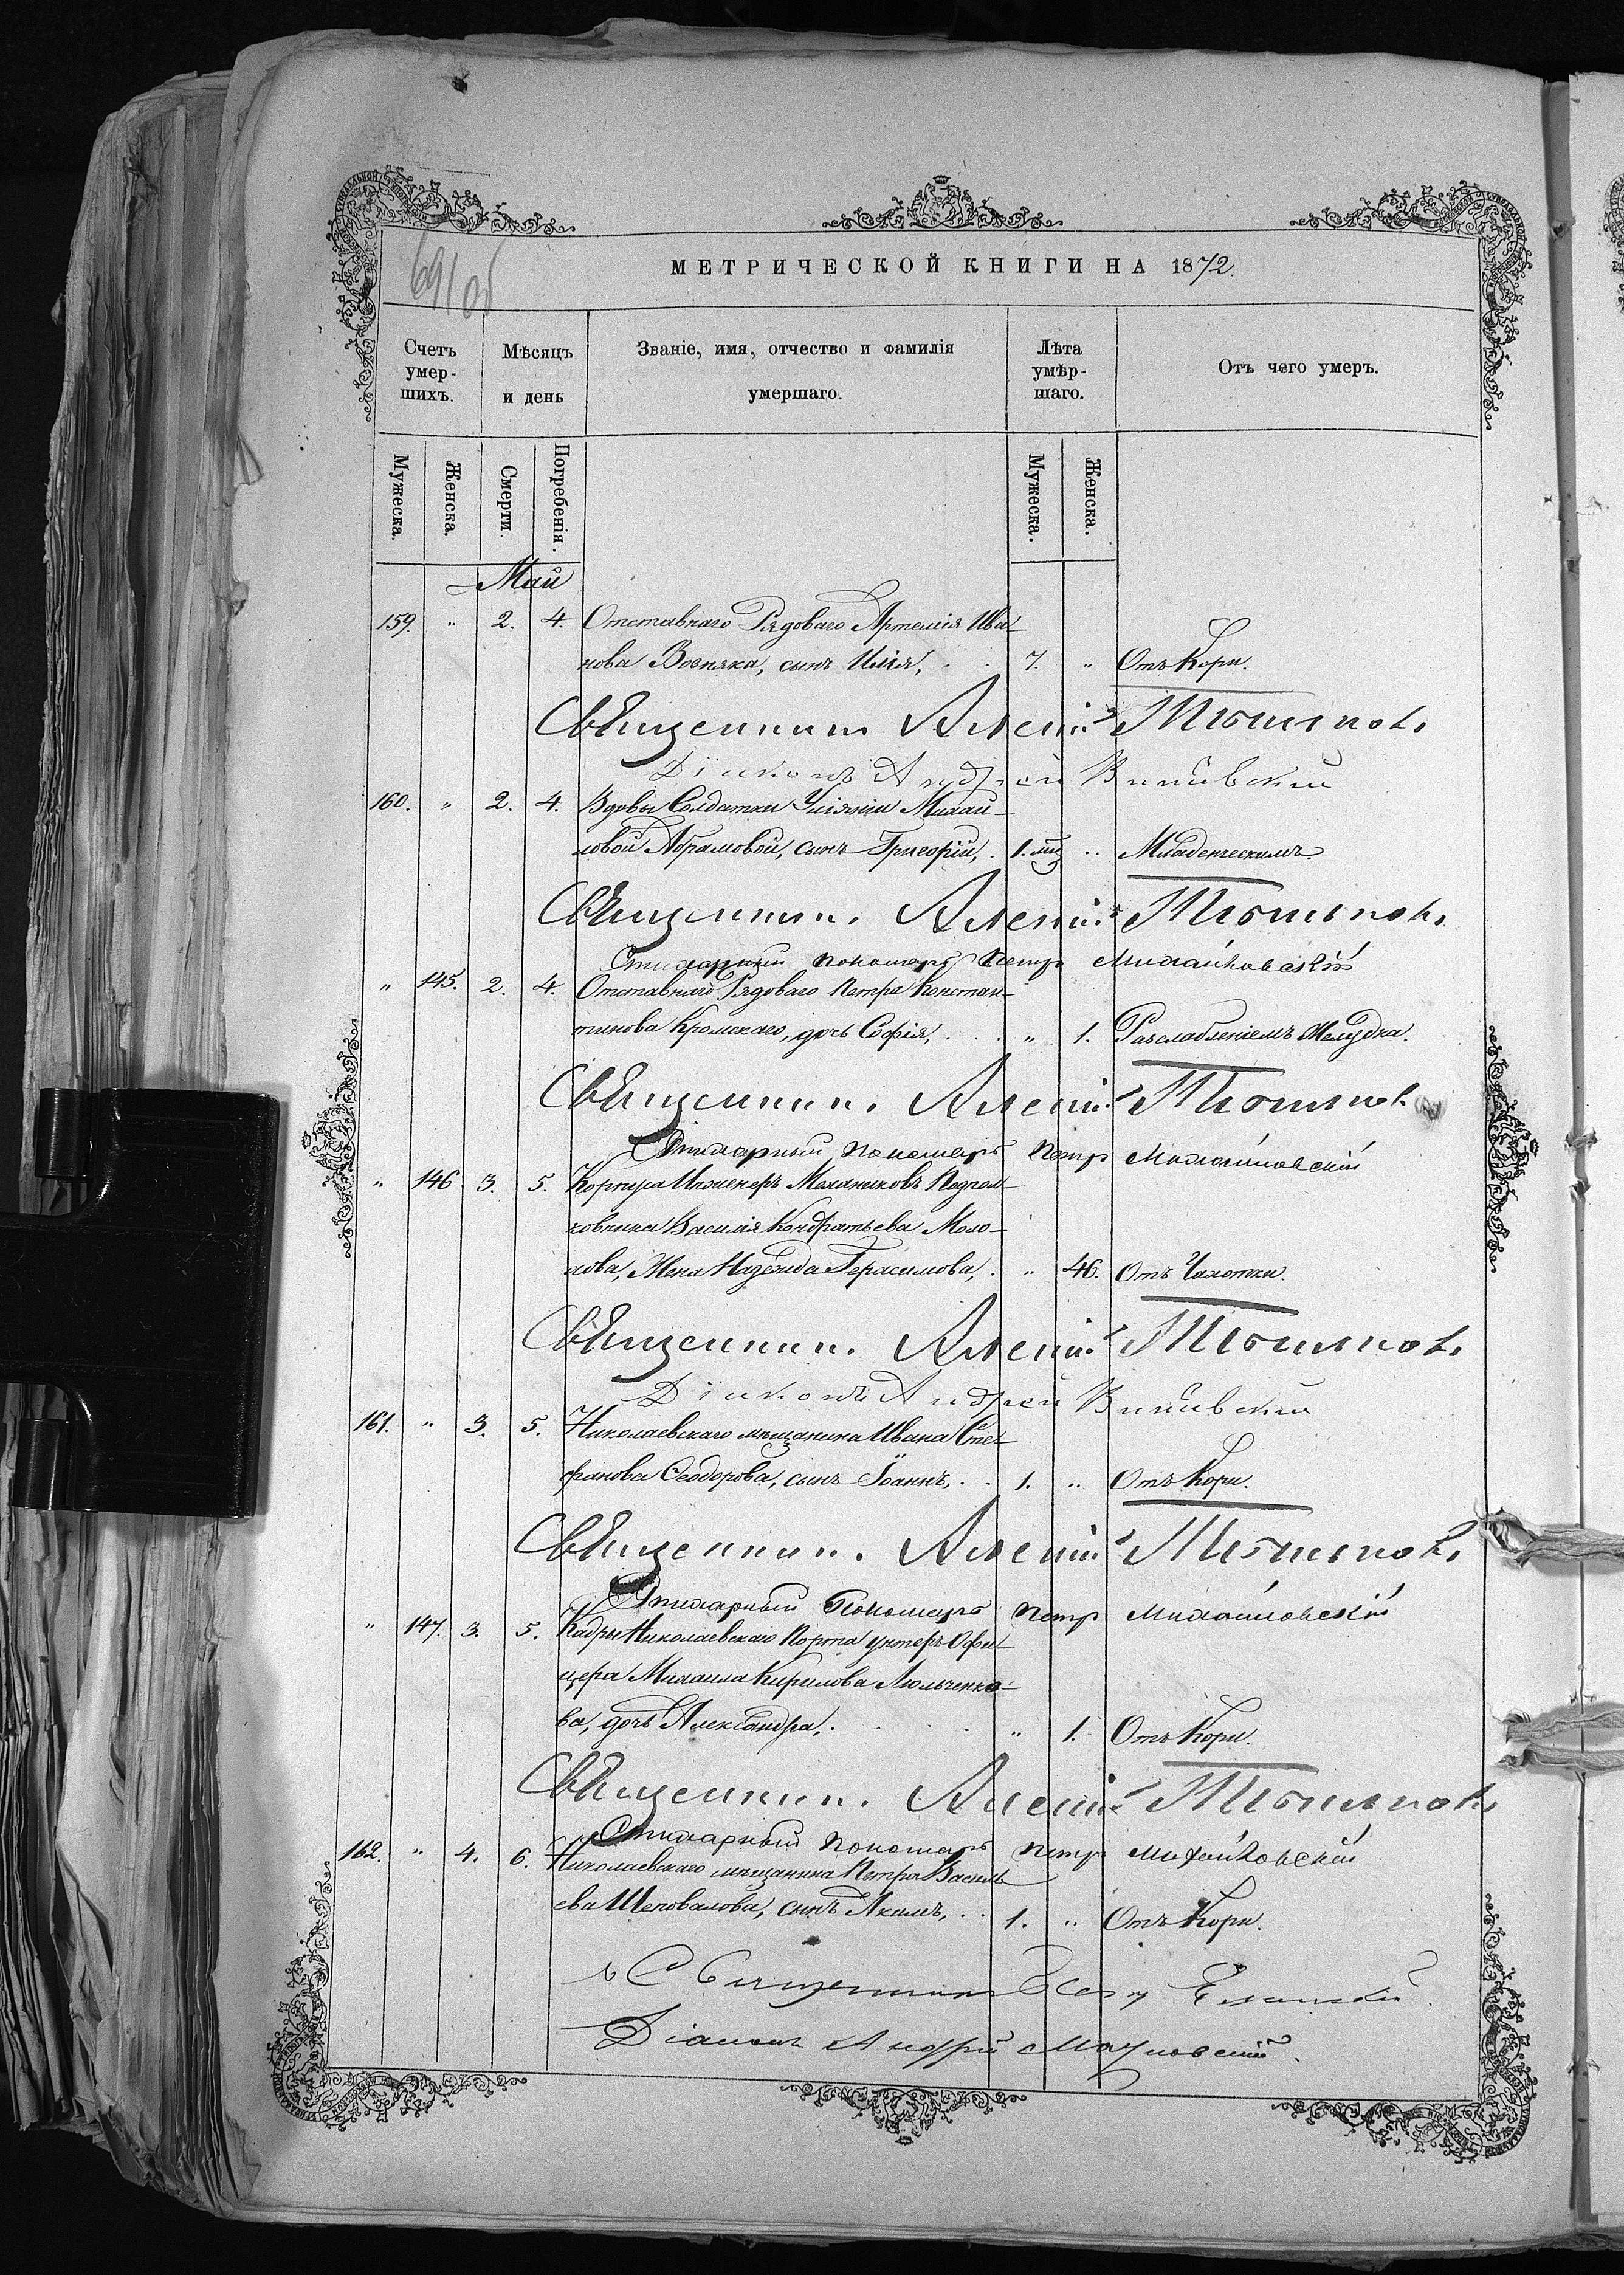 МЕТРИЧЕСКОЙ КНИГИ НА 1872.
Счетъ умер-шихъ.
Мѣсяцъ и день
Званіе, имя, отчество и фамилія умершаго.
Лѣта умѣр-шаго.
Отъ чего умеръ.
Мужеска. Женска. Смерти. Погребенія. Мужеска. Женска.
Май
159. " 2. 4. Отставнаго Рядоваго Артемія Ива-
нова Возняка, сынъ Илія, 7. " Отъ Кори.
Священникъ Алексій
Діаконъ Андрей
160. " 2. 4. Вдовы Солдатки Уліяніи Михай-
ловой Абрамовой, сынъ Григорій, 1. мѣс " Младенческимъ.
Священник. Алексій
Стихарный пономарь Петръ Михайловскій
" 145. 2. 4. Отставнаго Рядоваго Петра Констан-
тинова Кромскаго, дочь Софія, " 1. Разслабленіемъ Желудка.
Священник. Алексій
Стихарный пономарь Петръ Михайловскій
" 146 3. 5. Корпуса Инженеръ Механиковъ Подпол-
ковника Василія Кондратьева Моло-
хова, Жена Надежда Герасимова, " 46. Отъ Чахотки.
Священник. Алексій
Діаконъ Андрей
161. " 3. 5. Николаевскаго мѣщанина Ивана Сте-
фанова Ѳеодорова, сынъ Іоаннъ, 1. " Отъ Кори.
Священник. Алексій
Стихарный Пономарь Петръ Михайловскій
" 147. 3. 5. Кадры Николаевскаго Порта унтеръ-Офи-
цера Михаила Кирилова Люльченко-
ва, дочь Александра, " 1. Отъ Кори.
Священник. Алексій
Стихарный пономарь Петръ Михайловскій
162. " 4. 6. Николаевскаго мѣщанина Петра Василь
ева Шаповалова, сынъ Акимъ, 1. " Отъ Кори.
Священникъ
Діаконъ Андрей